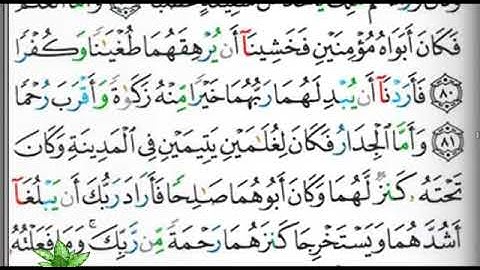 فَكَانَ أَبَوَاهُ مُؤْمِنَيْنِ فَخَشِينَآ أَن يُرْهِقَهُمَا طُغْيَٰنًا وَكُفْرًا
٨٠ فَأَرَدْنَآ أَن يُبْدِلَهُمَا رَبُّهُمَا خَيْرًا مِّنْهُ زَكَوٰةً وَأَقْرَبَ رُحْمًا
٨١ وَأَمَّا ٱلْجِدَارُ فَكَانَ لِغُلَٰمَيْنِ يَتِيمَيْنِ فِى ٱلْمَدِينَةِ وَكَانَ
تَحْتَهُۥ كَنزٌ لَّهُمَا وَكَانَ أَبُوهُمَا صَٰلِحًا فَأَرَادَ رَبُّكَ أَن يَبْلُغَآ
أَشُدَّهُمَا وَيَسْتَخْرِجَا كَنزَهُمَا رَحْمَةً مِّن رَّبِّكَ ۚ وَمَا فَعَلْتُهُۥ